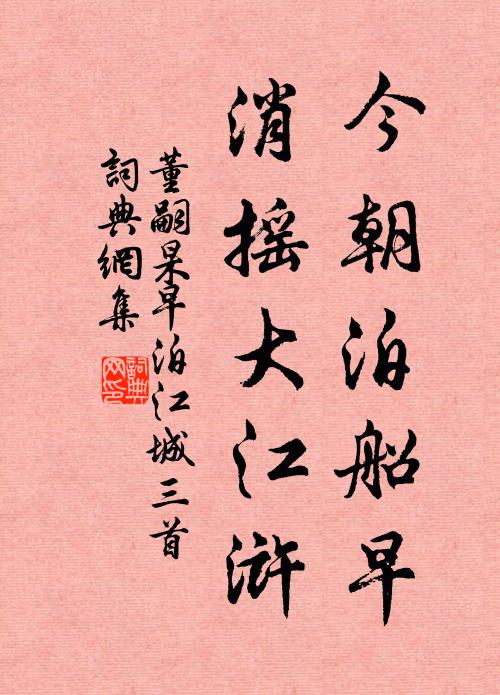 今朝泊船早
消摇大江浒
董嗣杲早泊江城三首
詞典網集
詞典网印